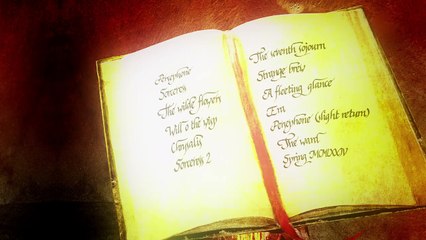 Persephone
Sorceress
The wilde flowers
Will o the wisp
Chrysalis
Sorceress 2
The seventh sojourn
Strange brew
A fleeting glance
Era
Persephone (slight return)
The ward
Spring MCMLXXIV